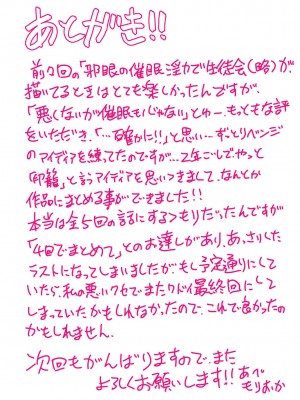 あとがき!!
前々回の「邪眼の催眠淫力で生徒会(略)」が、
描いてるときはとても楽しかったんですが、
「悪くないが催眠もじゃない」とゆー、もっともな評
をいただき、「…確かに!!」と思い…ずっとリベンジ
のアイディアを練ってたのですが…2年ごしでやっと
「印籠」と言うアイディアを思いつきまして、なんとか
作品にまとめる事ができました!!
本当は全5回の話にするつもりだったんですが
「4回でまとめて」とのお達しがあり、あっさりした
ラストになってしまいましたが、もし予定通りにして
いたら、私の悪いクセでまたクドイ最終回にして
しまっていたかもしれなかったので、これで良かったの
かもしれません。
次回もがんばりますので、また
よろしくお願いします!! あべ
もりおか